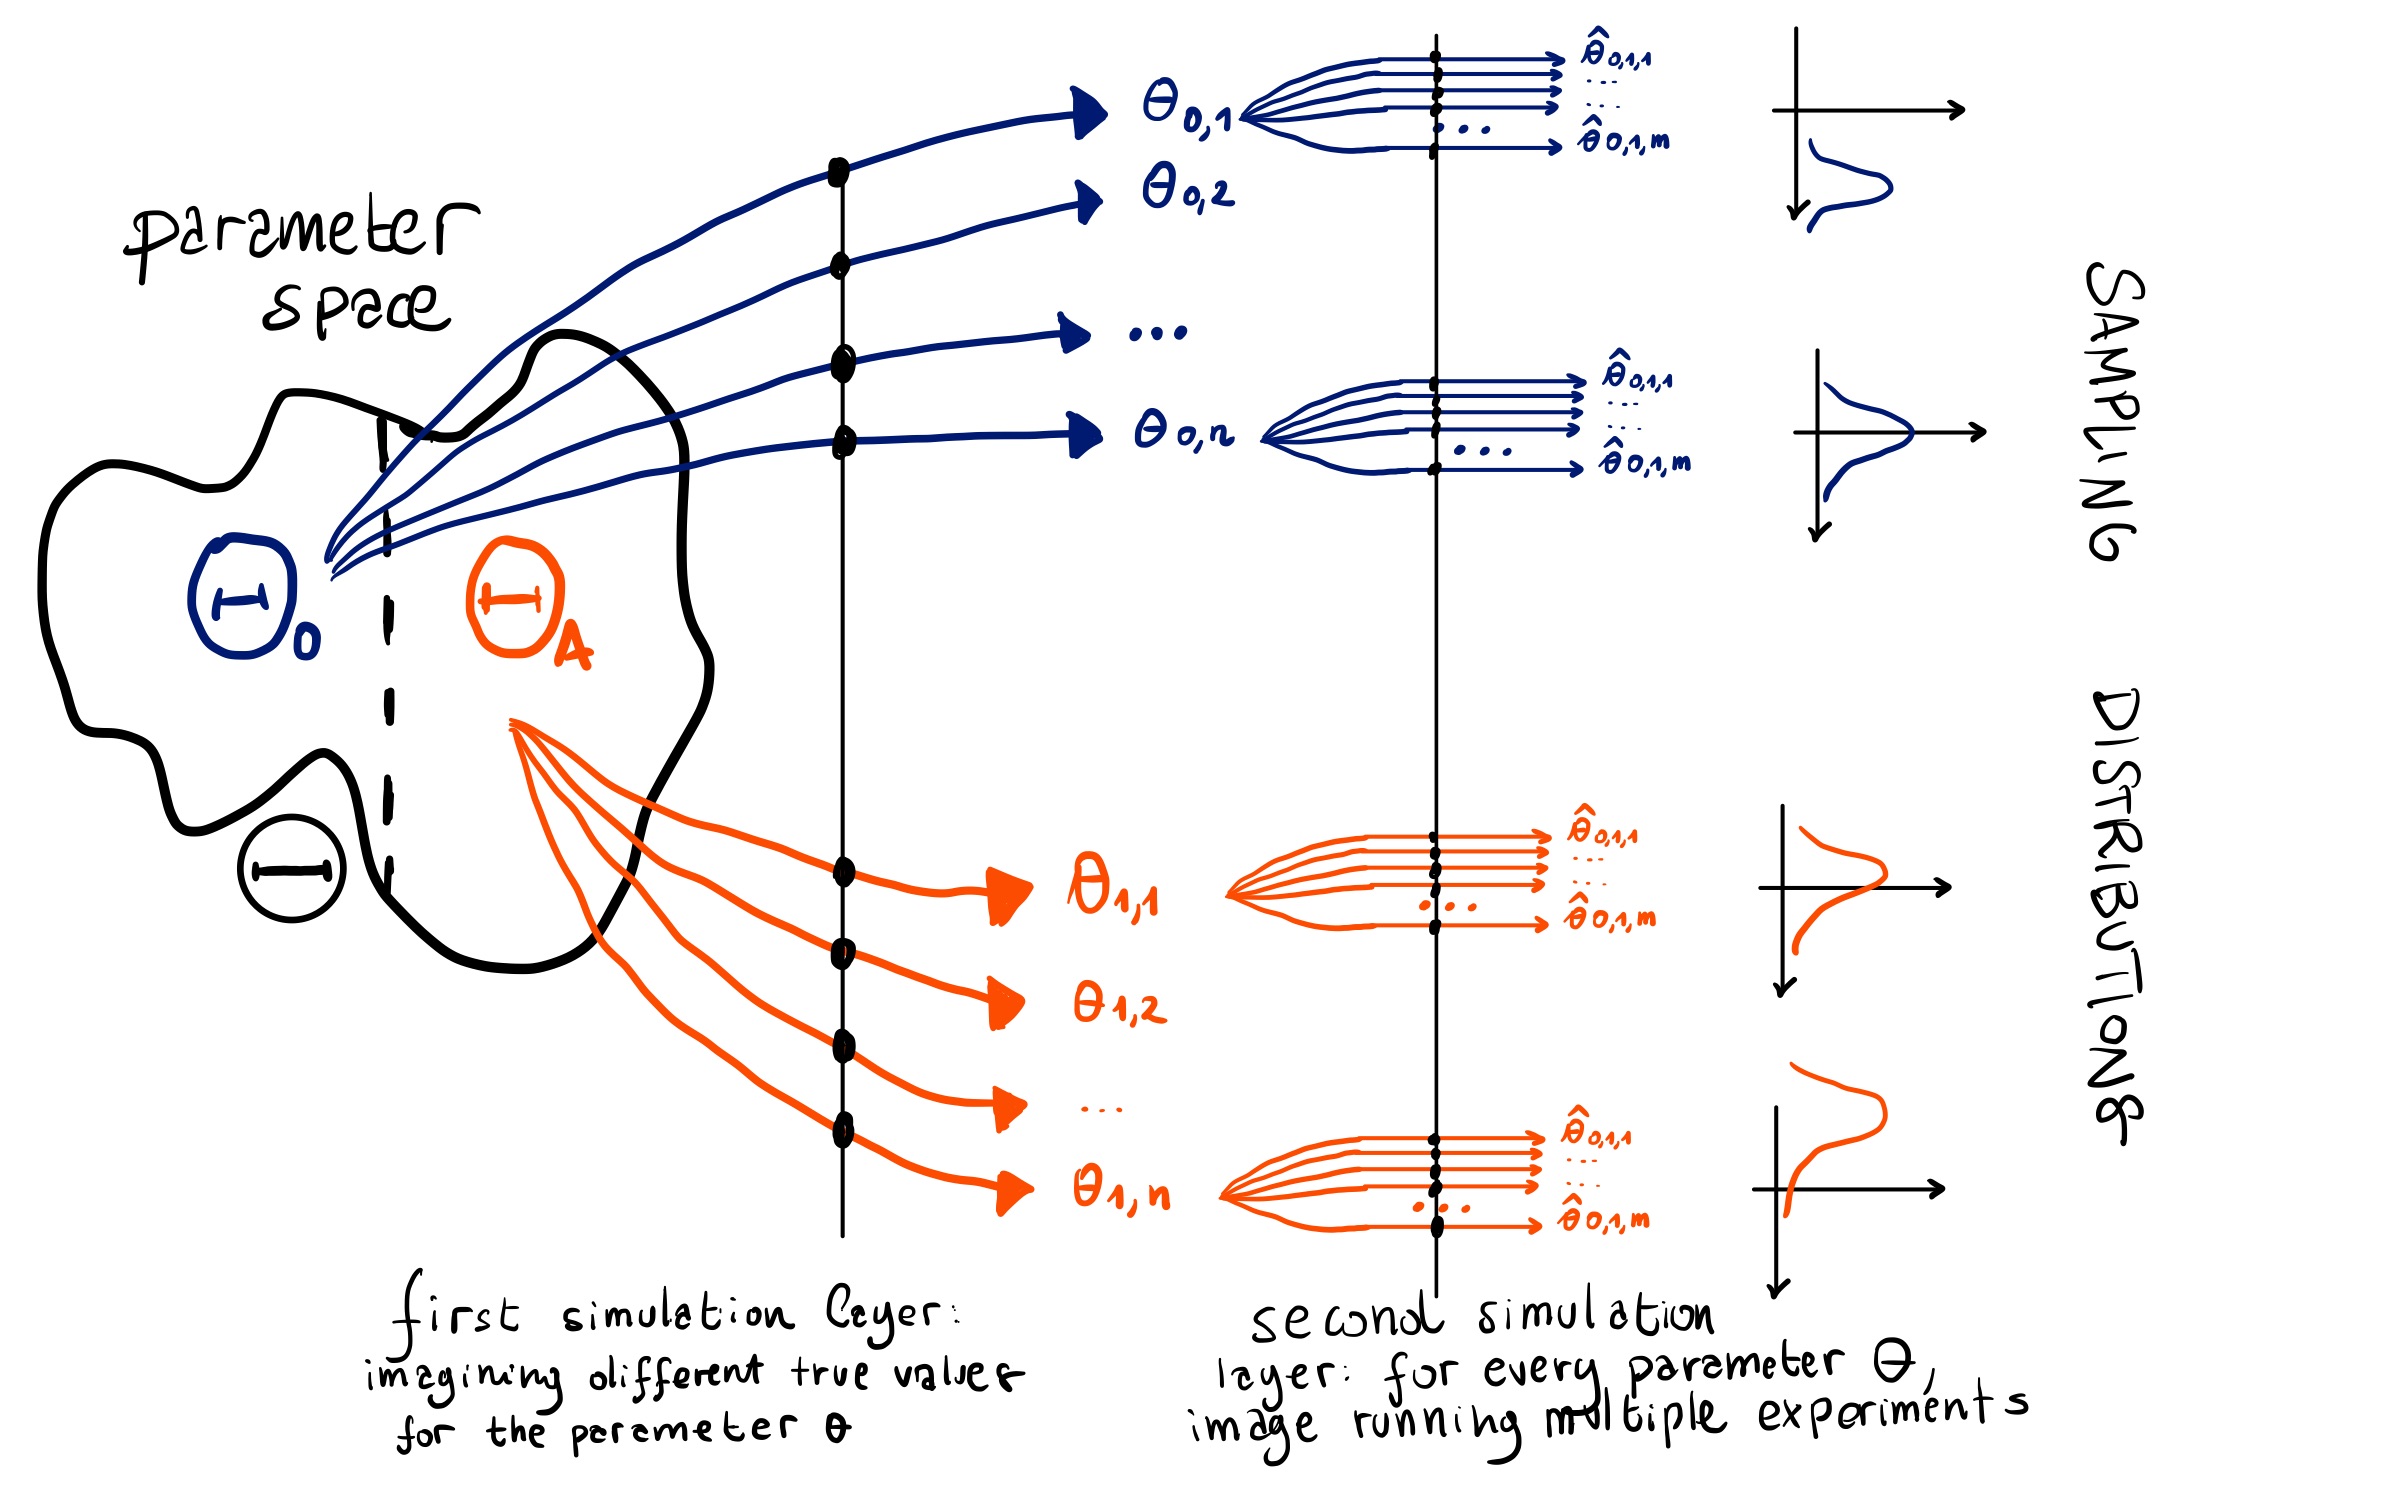 parameter
space
Θ₀
Θ_A
Θ
θ₀,₁
θ₀,₂
...
θ₀,ₙ
θ₁,₁
θ₁,₂
...
θ₁,ₙ
θ̂₀,₁,₁
...
...
θ̂₀,₁,ₘ
...
θ̂₀,₁,₁
...
...
θ̂₀,₁,ₘ
...
θ̂₀,₁,₁
...
...
θ̂₀,₁,ₘ
...
θ̂₀,₁,₁
...
...
θ̂₀,₁,ₘ
...
SAMPLING
DISTRIBUTIONS
first simulation layer:
imagining different true values
for the parameter θ
second simulation
layer: for every parameter θ,
image running multiple experiments